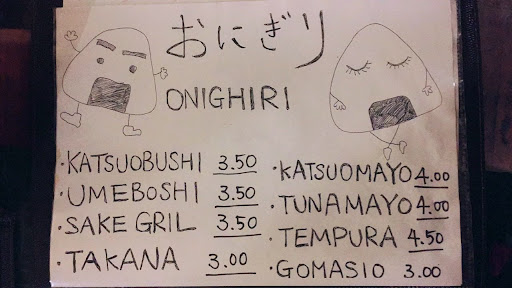 おにぎり
ONIGHIRI
·KATSUOBUSHI 3.50
·UMEBOSHI 3.50
·SAKE GRIL 3.50
·TAKANA 3.00
·KATSUOMAYO 4.00
·TUNAMAYO 4.00
·TEMPURA 4.50
·GOMASIO 3.00